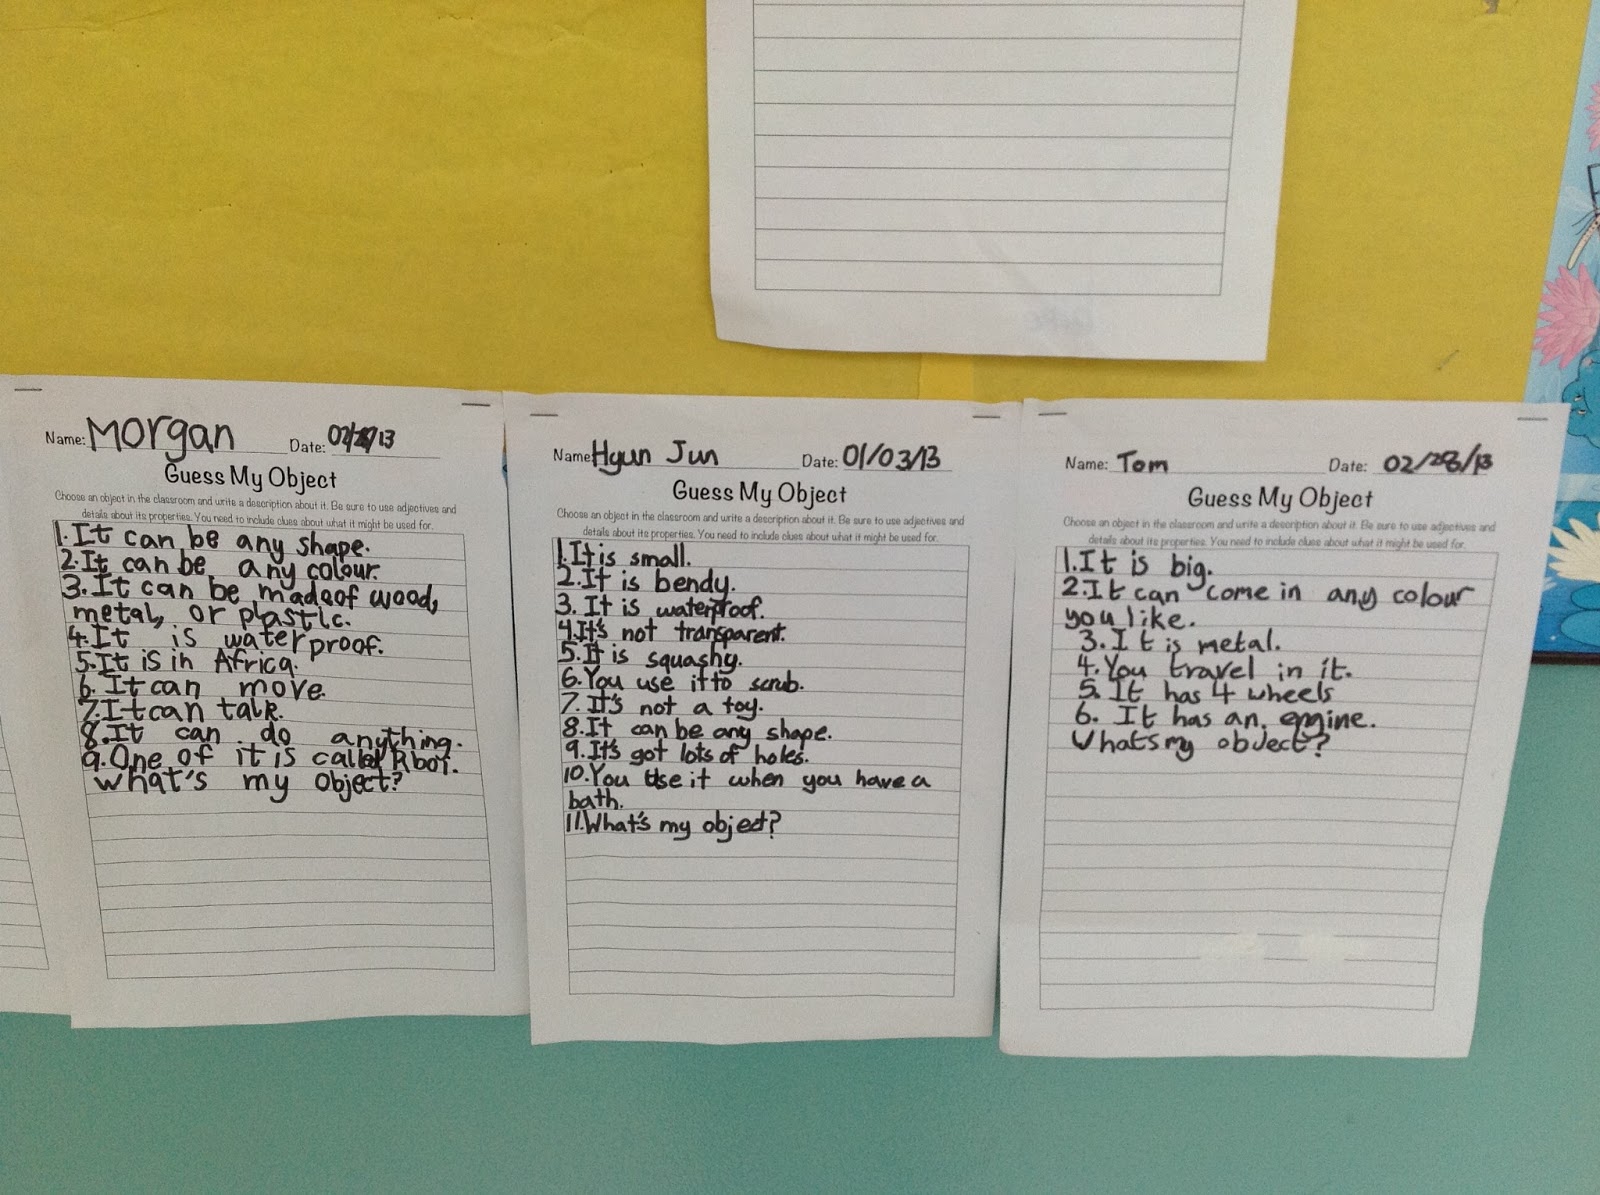 Name: Morgan Date:
Guess My Object
Choose an object in the classroom and write a description about it. Be sure to use adjectives and
details about its properties. You need to include clues about what it might be used for.
1. It can be any shape.
2. It can be any colour.
3. It can be madeof wood,
metal, or plastic.
4. It is waterproof.
5. It is in Africa.
6. It can move.
7. It can talk.
8. It can do anything.
9. One of it is called Rbot.
What's my object?
Name: Hyun Jun Date: 01/03/13
Guess My Object
Choose an object in the classroom and write a description about it. Be sure to use adjectives and
details about its properties. You need to include clues about what it might be used for.
1. It is small.
2. It is bendy.
3. It is waterproof.
4. It's not transparent.
5. It is squashy.
6. You use it to scrub.
7. It's not a toy.
8. It can be any shape.
9. It's got lots of holes.
10. You use it when you have a
bath.
11. What's my object?
Name: Tom Date: 02/28/13
Guess My Object
Choose an object in the classroom and write a description about it. Be sure to use adjectives and
details about its properties. You need to include clues about what it might be used for.
1. It is big.
2. It can come in any colour
you like.
3. It is metal.
4. You travel in it.
5. It has 4 wheels
6. It has an engine.
Whats my object?